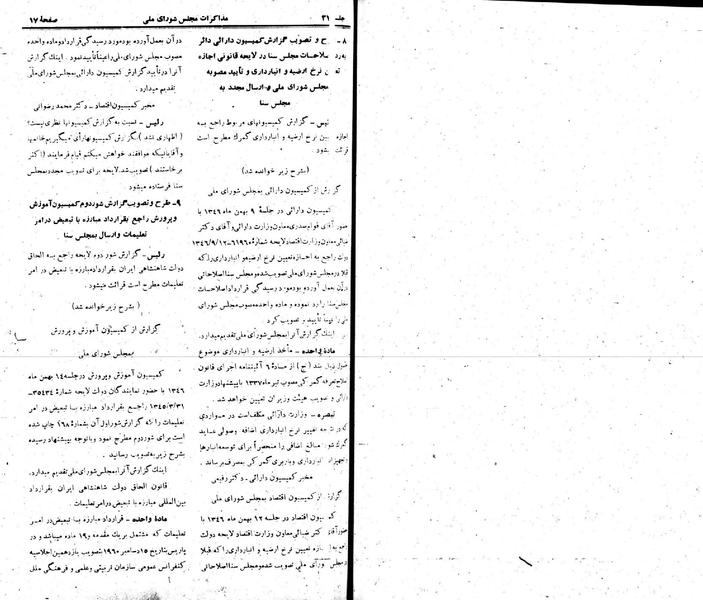 جلسه ۳۱
مذاکرات مجلس شورای ملی
صفحهٔ ۱۷
۸ـ طرح و تصویب گزارش کمیسیون دارائی دائر
به رد اصلاحات مجلس سنا در لایحه قانونی اجازه
تعیین نرخ ارضیه و انبارداری و تأیید مصوبه
مجلس شورای ملی و ارسال مجدد به
مجلس سنا
رئیس ـ گزارش کمیسیونهای مربوط راجع به
اجازه تعیین نرخ ارضیه و انبارداری گمرک مطرح است
قرائت میشود.
(بشرح زیر خوانده شد)
گزارش از کمیسیون دارائی بمجلس شورای ملی
کمیسیون دارائی در جلسهٔ ۹ بهمن ماه ۱۳۴۶ با
حضور آقای قوام صدری معاون وزارت دارائی و آقای دکتر
ضیائی معاون وزارت اقتصاد لایحه شمارهٔ ۶۱۹۶۰ـ۱۳۴۶/۹/۱۲
دولت راجع به اجازه تعیین نرخ ارضیه و انبارداری را که
قبلا در مجلس شورای ملی تصویب شده و مجلس سنا اصلاحاتی
در آن بعمل آورده بود مورد رسیدگی قرار داد و اصلاحات
مجلس سنا را رد نموده و ماده واحده مصوب مجلس شورای
ملی را عیناً تأیید و تصویب کرد.
اینک گزارش آنرا بمجلس شورای ملی تقدیم میدارد.
مادهٔ واحده ـ مأخذ ارضیه و انبارداری موضوع
جدول ذیل بند (ح) از مادهٔ ۶ آئیننامه اجرای قانون
اصلاح تعرفه گمرکی مصوب تیر ماه ۱۳۳۷ با پیشنهاد وزارت
دارائی و تصویب هیئت وزیران تعیین خواهد شد.
تبصره ـ وزارت دارائی مکلف است در مواردی
که در نتیجه تغییر نرخ انبارداری اضافه وصولی عاید
گمرک شود مبالغ اضافی را منحصراً برای توسعه انبارها
و تجهیزات انبارداری و باربری گمرکی بمصرف برساند.
مخبر کمیسیون دارائی ـ دکتر رفیعی
گزارش از کمیسیون اقتصاد بمجلس شورای ملی
کمیسیون اقتصاد در جلسه ۱۲ بهمن ماه ۱۳۴۶ با
حضور آقای دکتر ضیائی معاون وزارت اقتصاد لایحه دولت
راجع به اجازه تعیین نرخ ارضیه و انبارداری را که قبلا
در مجلس شورای ملی تصویب شده و مجلس سنا اصلاحاتی
در آن بعمل آورده بود مورد رسیدگی قرار داد و ماده واحده
مصوب مجلس شورای ملی را عیناً تأیید نمود. اینک گزارش
آنرا در تأیید گزارش کمیسیون دارائی بمجلس شورای ملی
تقدیم میدارد.
مخبر کمیسیون اقتصاد ـ دکتر محمد رضوانی
رئیس ـ نسبت به گزارش کمیسیونها نظری نیست؟
(اظهاری نشد) بگزارش کمیسیونها رأی میگیریم خانمها
و آقایانیکه موافقند خواهش میکنم قیام فرمایند (اکثر
برخاستند) تصویب شد. لایحه برای تصویب مجدد بمجلس
سنا فرستاده میشود
۹ـ طرح و تصویب گزارش شور دوم کمیسیون آموزش
و پرورش راجع بقرارداد مبارزه با تبعیض در امر
تعلیمات و ارسال بمجلس سنا
رئیس ـ گزارش شور دوم لایحه راجع به الحاق
دولت شاهنشاهی ایران بقرارداد مبارزه با تبعیض در امر
تعلیمات مطرح است قرائت میشود.
(بشرح زیر خوانده شد)
گزارش از کمیسیون آموزش و پرورش
بمجلس شورای ملی
کمیسیون آموزش و پرورش در جلسه ۱۴ بهمن ماه
۱۳۴۶ با حضور نمایندگان دولت لایحه شماره: ۳۵۴۳۴ـ
۱۳۴۵/۳/۳۱ راجع بقرارداد مبارزه با تبعیض در امر
تعلیمات را که گزارش شور اول آن بشماره: ۱۶۸ چاپ شده
است برای شور دوم مطرح نمود و با توجه به پیشنهاد رسیده
بشرح زیر به تصویب رسانید.
اینک گزارش آنرا بمجلس شورای ملی تقدیم میدارد.
قانون الحاق دولت شاهنشاهی ایران بقرارداد
بین‌المللی مبارزه با تبعیض در امر تعلیمات.
مادهٔ واحده ـ قرارداد مبارزه با تبعیض در امر
تعلیمات که مشتمل بر یک مقدمه و ۱۹ ماده میباشد و در
پاریس بتاریخ ۱۵ دسامبر ۱۹۶۰ بتصویب یازدهمین اجلاسیه
کنفرانس عمومی سازمان تربیتی و علمی و فرهنگی ملل